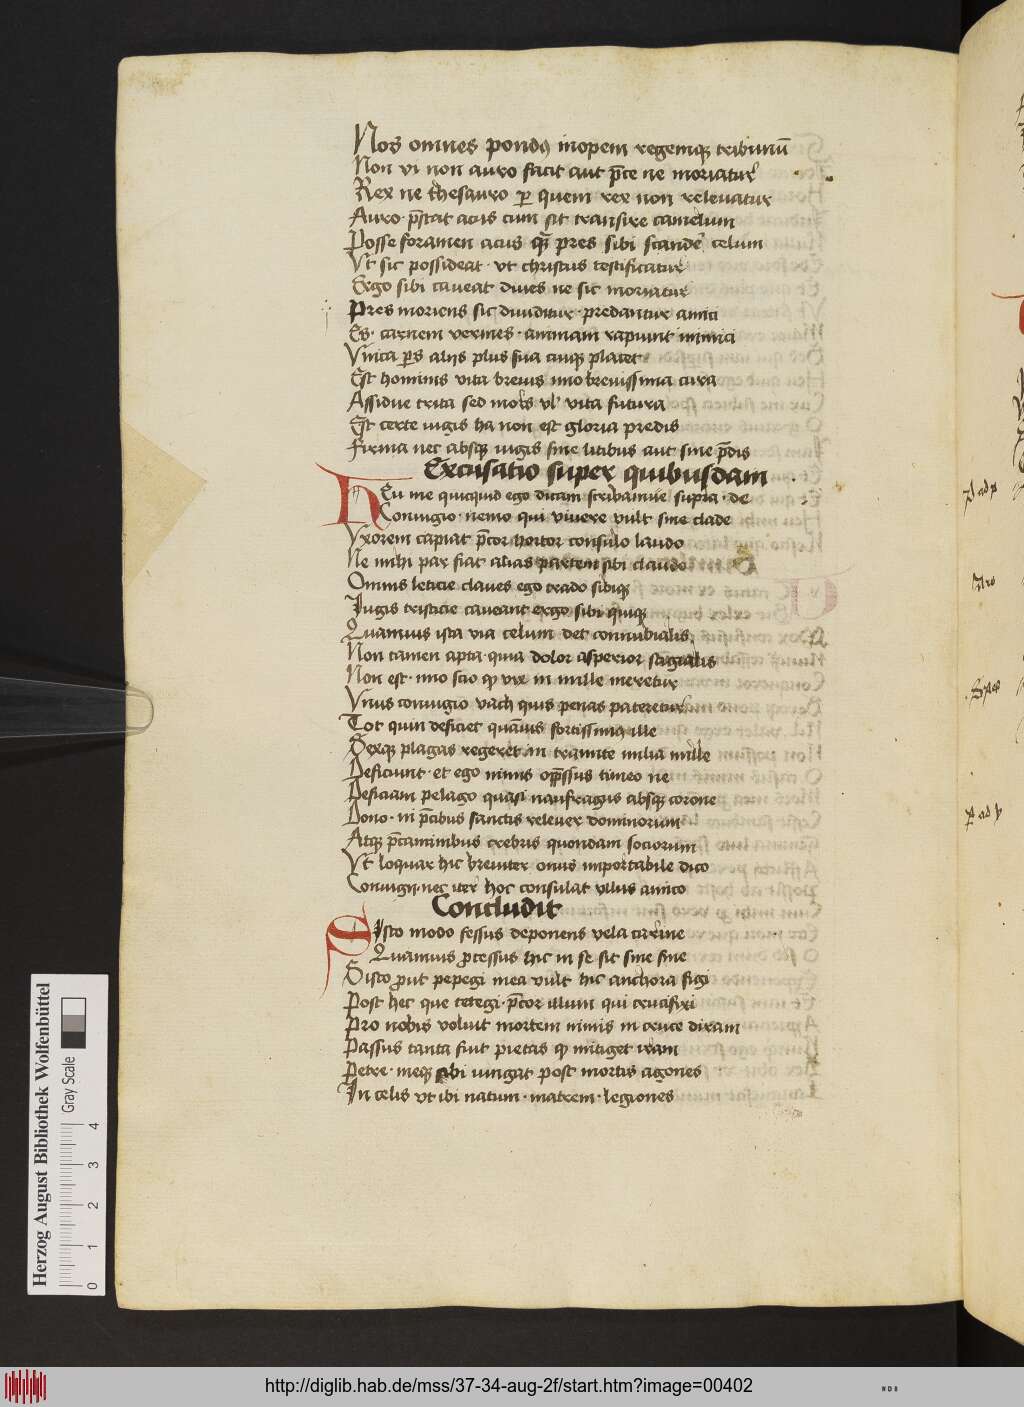 Nos omnes pondꝯ inopem regemqꝫ tribunū
Non vi non auro facit aut p̄ce ne moriatur
Rex ne thesauro ꝑ quem rex non relevatur
Auro p̄stat acus cum sit transire camelum
Posse foramen acus qm̄ pres sibi scandere celum
Vt sic possideat vt christus testificatur
Ergo sibi caveat dives ne sic moriatur
Pres moriens sic dividitur predantur amici
Es carnem vermes animam rapiunt inimici
Vnica pars alijs plus sua cuiqꝫ placet
Est hominis vita brevis imo brevissima cura
Assidue trita sed mors vl' vita futura
Est certe iugis ha non est gloria predis
Firma nec absqꝫ iugis sine litibus aut sine p̄dis
Excusatio super quibusdam
Heu me quicquid ego dicam scribamve supra de
Coniugio nemo qui vivere vult sine clade
Vxorem capiat p̄cor hortor consulo laudo
Ne mihi par fiat alias partem sibi claudo
Omnis leticie claves ego trado sibiqꝫ
Iugis tristicie caveant ergo sibi quiqꝫ
Quamvis ista via celum det connubialis
Non tamen apta quia dolor asperior stigialis
Non est imo scio qꝫ vix in mille meretur
Vnus coniugio vach quis penas pateretur
Tot quin deficiet quāvis fortissimus ille
Sexqꝫ plagas regeret in tramite milia mille
Deficiunt et ego nimis opp̄ssus timeo ne
Deficiam pelago quasi naufragus absqꝫ corone
Dono ni p̄cibus sanctis relever dominorum
Atqꝫ p̄caminibus crebris quondam sociorum
Vt loquar hic breviter onus importabile dico
Coniugii nec iter hoc consulat vllus amico
Concludit
Sisto modo fessus deponens vela carine
Quamvis processus hic in se sit sine fine
Sisto prout pepegi mea vult hic anchora figi
Post hec que tetegi p̄cor illum qui crucifixi
Pro nobis voluit mortem nimis in cruce diram
Passus tanta fuit pietas qꝫ mitiget iram
Petre meqꝫ sibi iungat post mortis agones
In celis vt ibi natum matrem legiones
Herzog August Bibliothek Wolfenbüttel
Gray Scale
0 1 2 3 4
http://diglib.hab.de/mss/37-34-aug-2f/start.htm?image=00402